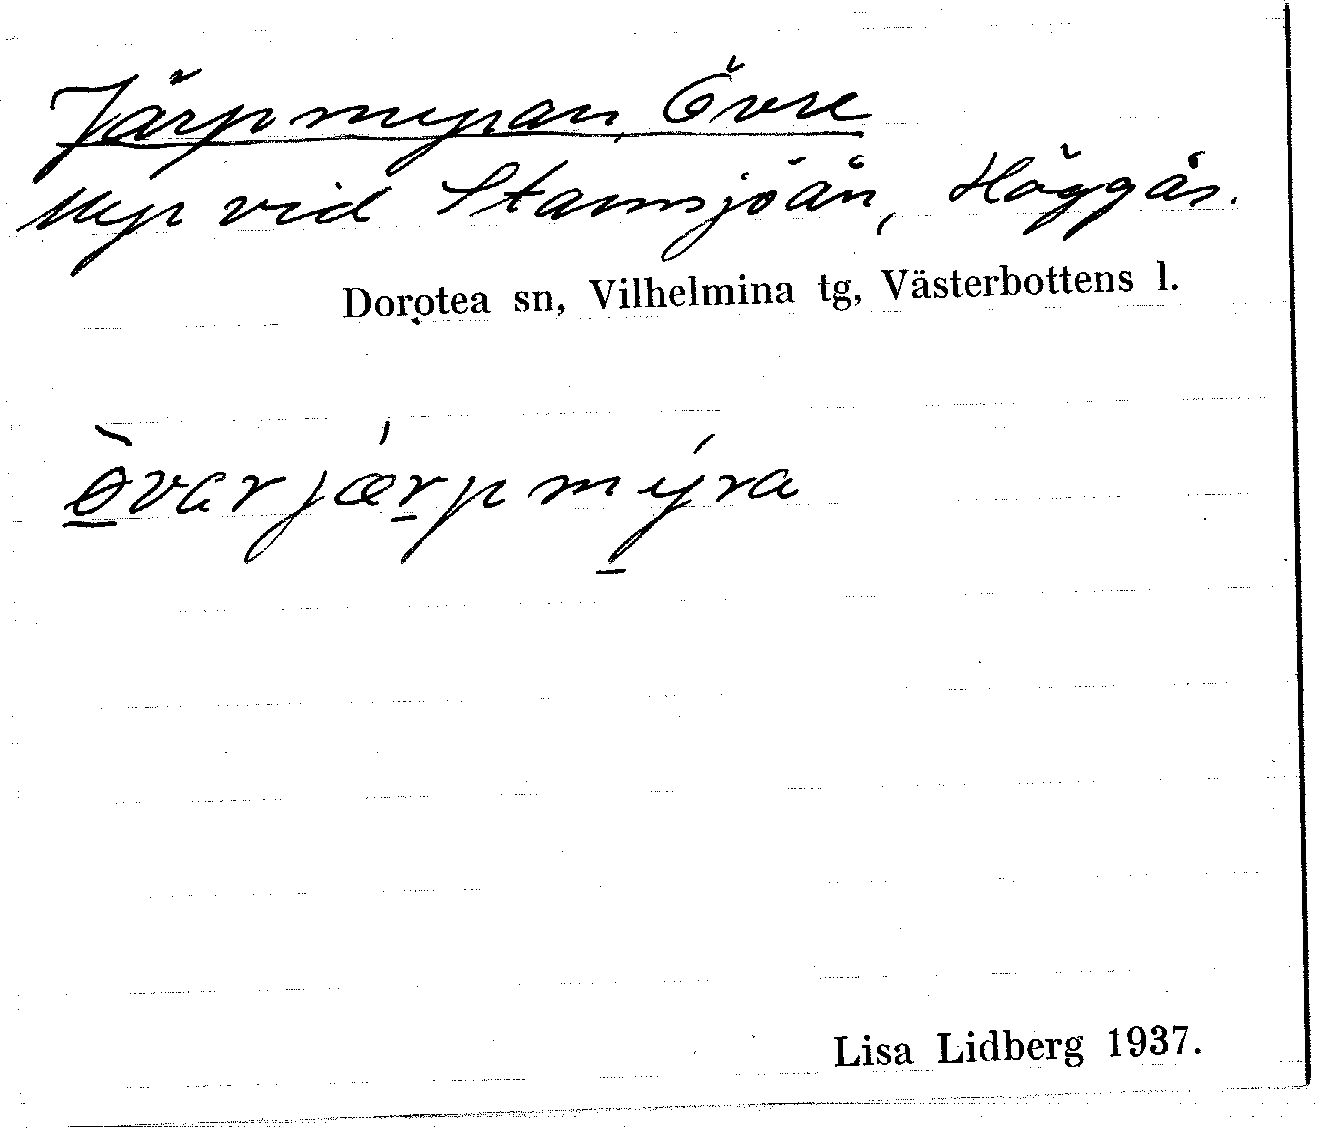 Järpmyran, Övre
Myr vid Stamsjöån, Höggås.
Dorotea sn, Vilhelmina tg, Västerbottens l.
ɵ̀varjǽrpmýra
Lisa Lidberg 1937.